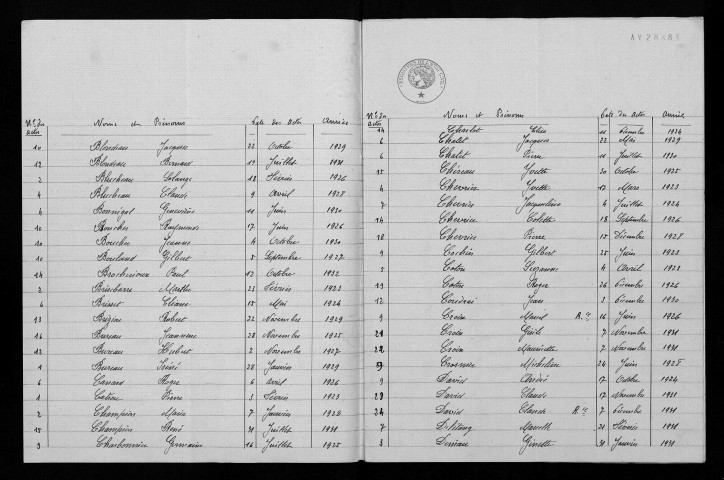 Nos des actes Noms et Prénoms Date des Actes Années
10 Blondeau Jacques 22 Octobre 1929
12 Blondeau Bernard 19 Juillet 1931
2 Blucheau Solange 18 Février 1926
4 Blucheau Claude 9 Avril 1928
4 Geneviève 11 Juin 1930
10 Boucher Raymonde 17 Juin 1926
10 Boucher Jeanne 4 Octobre 1930
10 Bouland Gilbert 5 Septembre 1927
14 Paul 12 Octobre 1932
3 Marthe 23 Février 1923
6 Brisset Eliane 15 Mai 1924
13 Robert 22 Novembre 1929
16 Bureau Jeannine 28 Novembre 1925
12 Bureau Hubert 2 Novembre 1927
1 Bureau Irène 28 Janvier 1929
6 Canard Roger 6 Avril 1926
1 Pierre 3 Février 1923
2 Champion Marie 7 Janvier 1928
15 Champion René 31 Juillet 1931
9 Charbonnier Germaine 16 Juillet 1925
Nos des actes Noms et Prénoms Date des Actes Années
14 11 Décembre 1924
6 Chalet Jacques 22 Mai 1929
6 Chalet Pierre 11 Juillet 1930
15 Chéreau Yvette 30 Octobre 1925
4 Chevrier Yvette 12 Mars 1923
7 Chevrier Jacqueline 4 Juillet 1924
14 Chevrier Colette 18 Septembre 1926
18 Chevrier Pierre 15 Décembre 1928
9 Cochin Gilbert 25 Juin 1923
5 Coton Suzanne 4 Avril 1923
19 Coton Roger 26 Décembre 1926
12 Jean 3 Décembre 1930
9 Croix Marcel 16 Juin 1926
21 Croix 7 Novembre 1931
22 Croix Mauricette 7 Novembre 1931
9 Micheline 24 Juin 1928
9 David André 17 Octobre 1924
23 David Claude 17 Novembre 1931
24 David Claude 7 Décembre 1931
7 Marcelle 21 Février 1931
3 Ginette 31 Janvier 1931